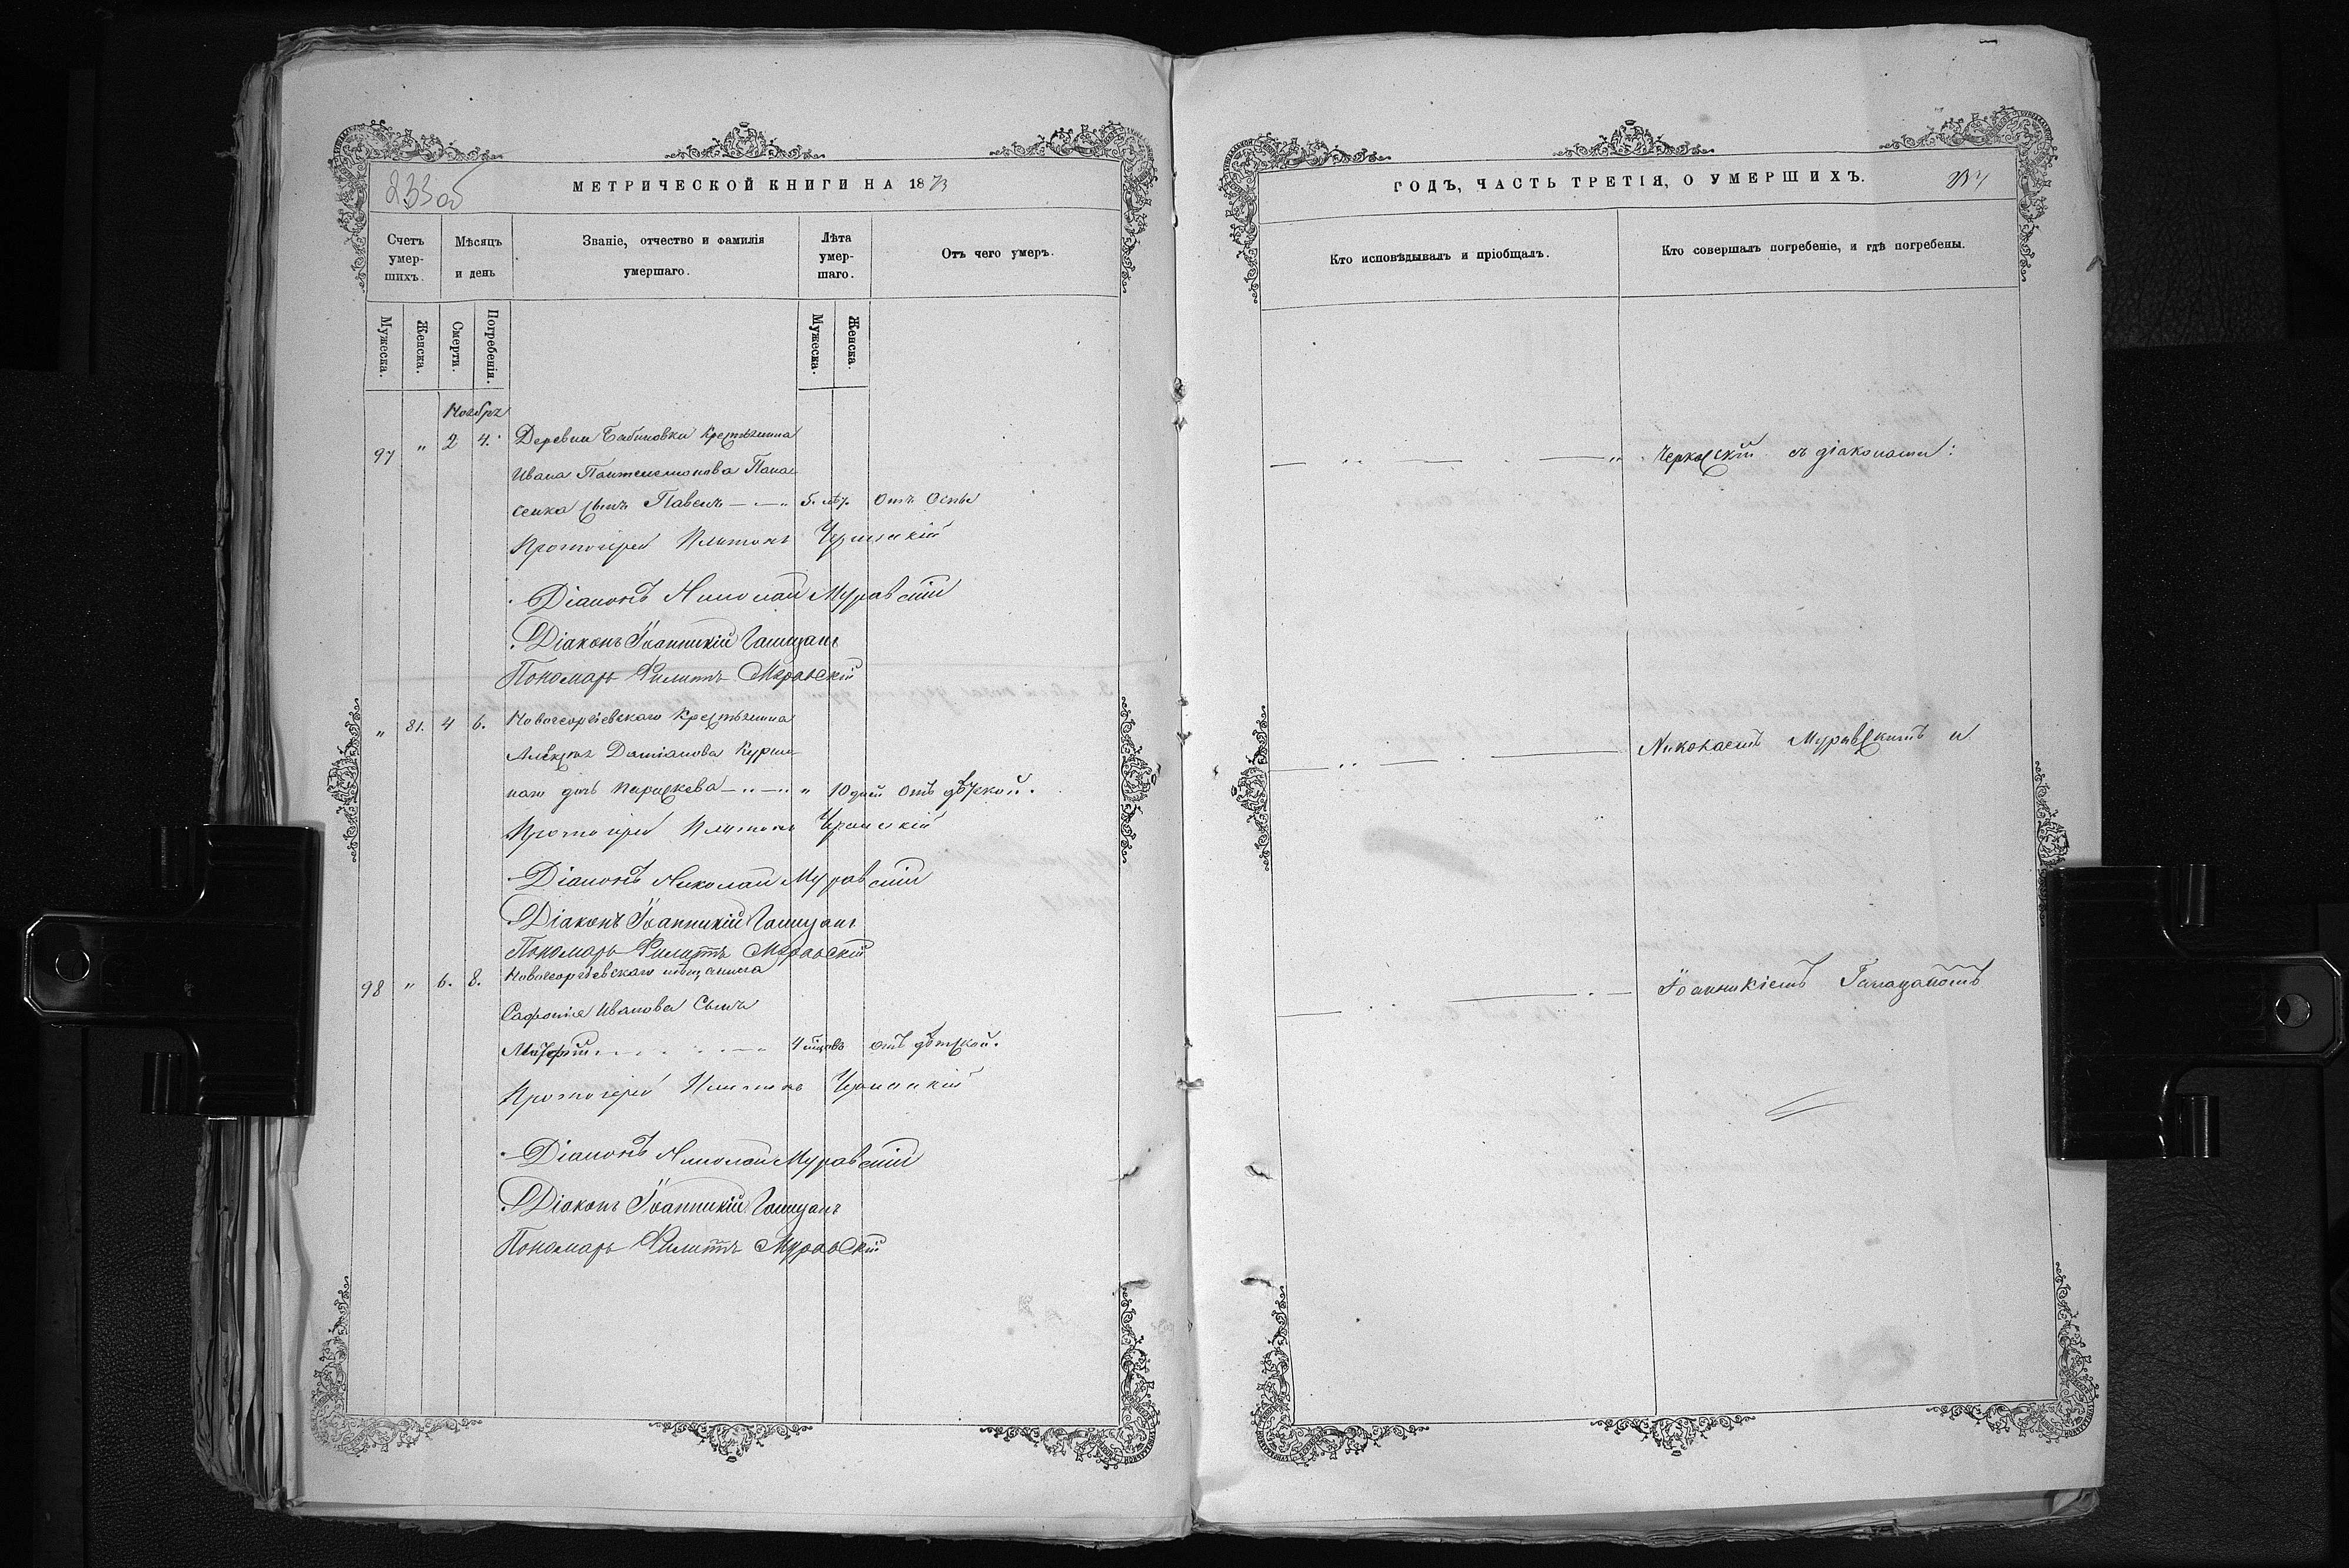 233об
МЕТРИЧЕСКОЙ КНИГИ НА 1873
Счетъ умер-шихъ.
Мѣсяцъ и день
Званіе, отчество и фамилія умершаго.
Лѣта умер-шаго.
Отъ чего умеръ.
Мужеска.
Женска.
Смерти.
Погребенія.
Мужеска.
Женска.
Ноябрь
97 " 2 4. Деревни Бабиновки Крестьянина
Ивана Пантелеимонова Пана-
сенка сынъ Павелъ 5. лѣт. Отъ Оспы
Протоіерей Платонъ
Діаконъ Николай Муравскій
Діаконъ Іоанникій
Пономарь Филиппъ Муравскій
" 81. 4 6. Новогеоргіевскаго Крестьянина
Даміанова
дочь Параскева " 10 дней отъ дѣтской.
Протоіерей Платонъ
Діаконъ Николай Муравскій
Діаконъ Іоанникій
Пономарь Филиппъ Муравскій
98 " 6. 8. Новогеоргіевскаго мѣщанина
Иванова Сынъ
4 мѣсяцовъ отъ дѣтской.
Протоіерей Платонъ
Діаконъ Николай Муравскій
Діаконъ Іоанникій
Пономарь Филиппъ Муравскій
ГОДЪ, ЧАСТЬ ТРЕТІЯ, О УМЕРШИХЪ.
234
Кто исповѣдывалъ и пріобщалъ.
Кто совершалъ погребеніе, и гдѣ погребены.
съ діаконами:
Николаемъ Муравскимъ и
Іоанникіемъ